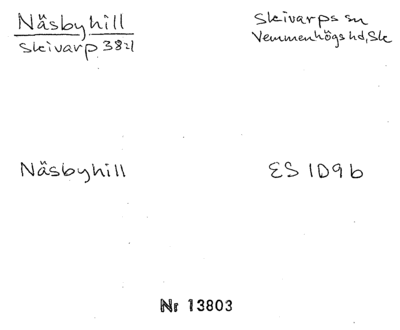 Näsbyhill
Skivarp 38:1
Skivarps sn
Vemmenhögs hd, Sk
Näsbyhill
ES 1D9b
Nr 13803